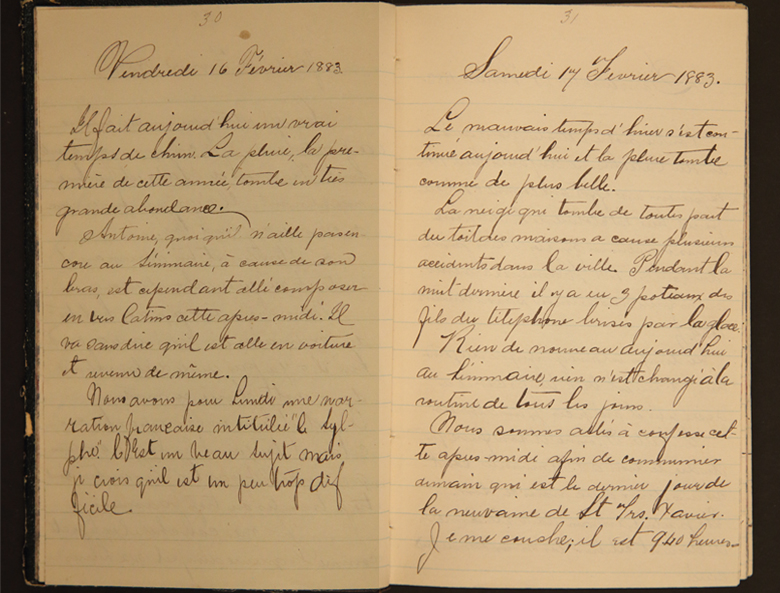 30
Vendredi 16 Février 1883.
Il fait aujourd'hui un vrai
temps de chien. La pluie, la pre-
mière de cette année, tombe en très
grande abondance.
Antoine, quoiqu'il n'aille pas en-
core au Séminaire, à cause de son
bras, est cependant allé composer
en vers latins cette après-midi. Il
va sans dire qu'il est allé en voiture
et revenu de même.
Nous avons pour Lundi une nar-
ration française intitulée "le Syl-
phe". C'est un beau sujet mais
je crois qu'il est un peu trop dif
ficile.
31
Samedi 17 Février 1883.
Le mauvais temps d'hier s'est con-
tinué aujourd'hui et la pluie tombe
comme de plus belle.
La neige qui tombe de toutes part
du toit des maisons a cause plusieurs
accidents dans la ville. Pendant la
nuit dernière il y a eu 3 poteaux des
fils du téléphone brisés par la glace.
Rien de nouveau aujourd'hui
au Séminaire, rien n'est changé à la
routine de tous les jours.
Nous sommes allés à confesse cet-
te après-midi afin de communier
demain qui est le dernier jour de
la neuvaine de St Frs. Xavier.
Je me couche; il est 9 40 heures-